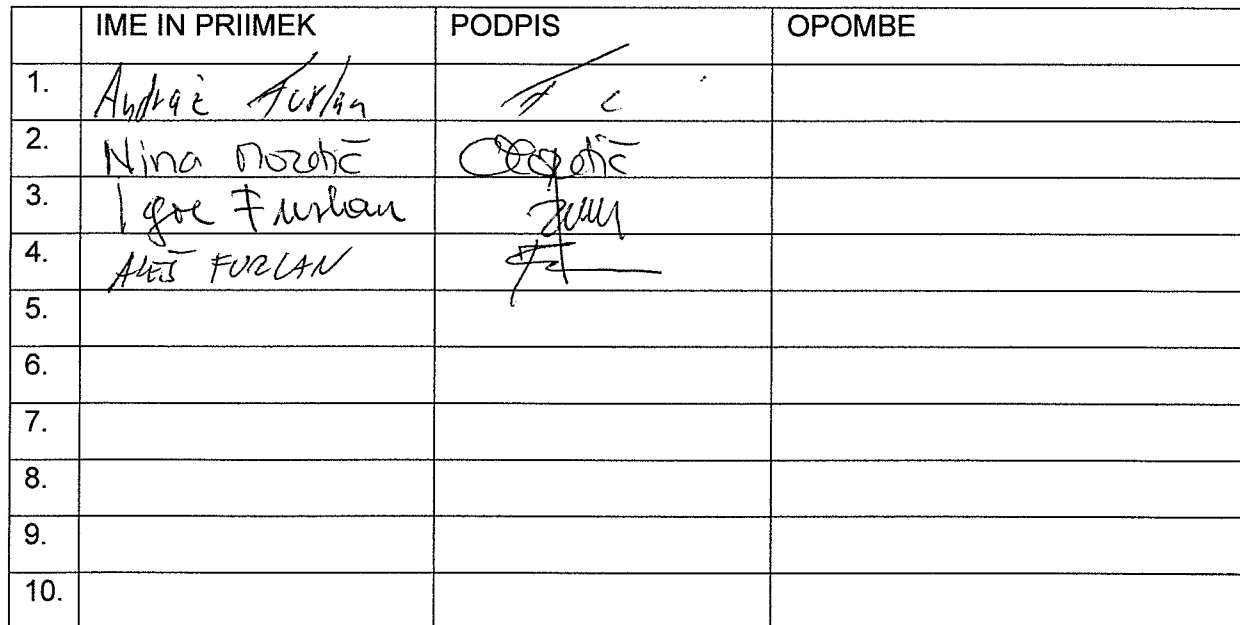 IME IN PRIIMEK PODPIS OPOMBE
1. Andraž Furlan
2. Nina
3. Igor Furlan
4. ALEŠ FURLAN
5.
6.
7.
8.
9.
10.